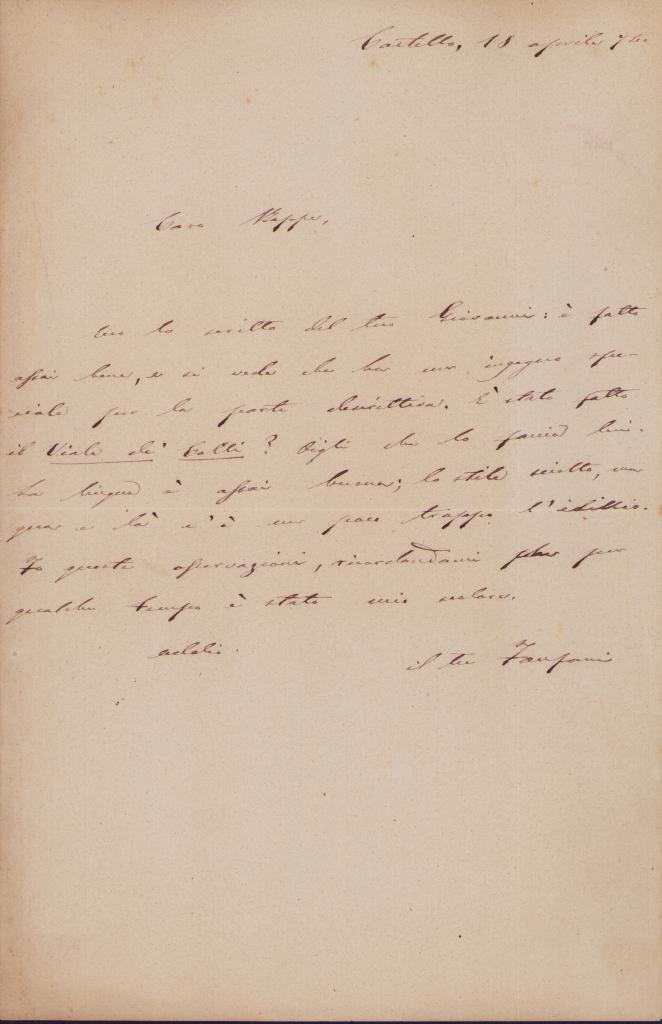 Castello, 18 aprile 76.
Caro Beppe,
Ecco lo scritto del tuo Giovanni: è fatto
assai bene, e si vede che ha un ingegno spe-
ciale per la parte descrittiva. È stato fatto
il Viale de' Colli? digli che lo faccia lui.
La lingua è assai buona; lo stile sciolto, ma
qua e là c'è un poco troppo l'idillio.
Fo queste osservazioni, ricordandomi che per
qualche tempo è stato mio scolare.
addio.
il tuo Fanfani